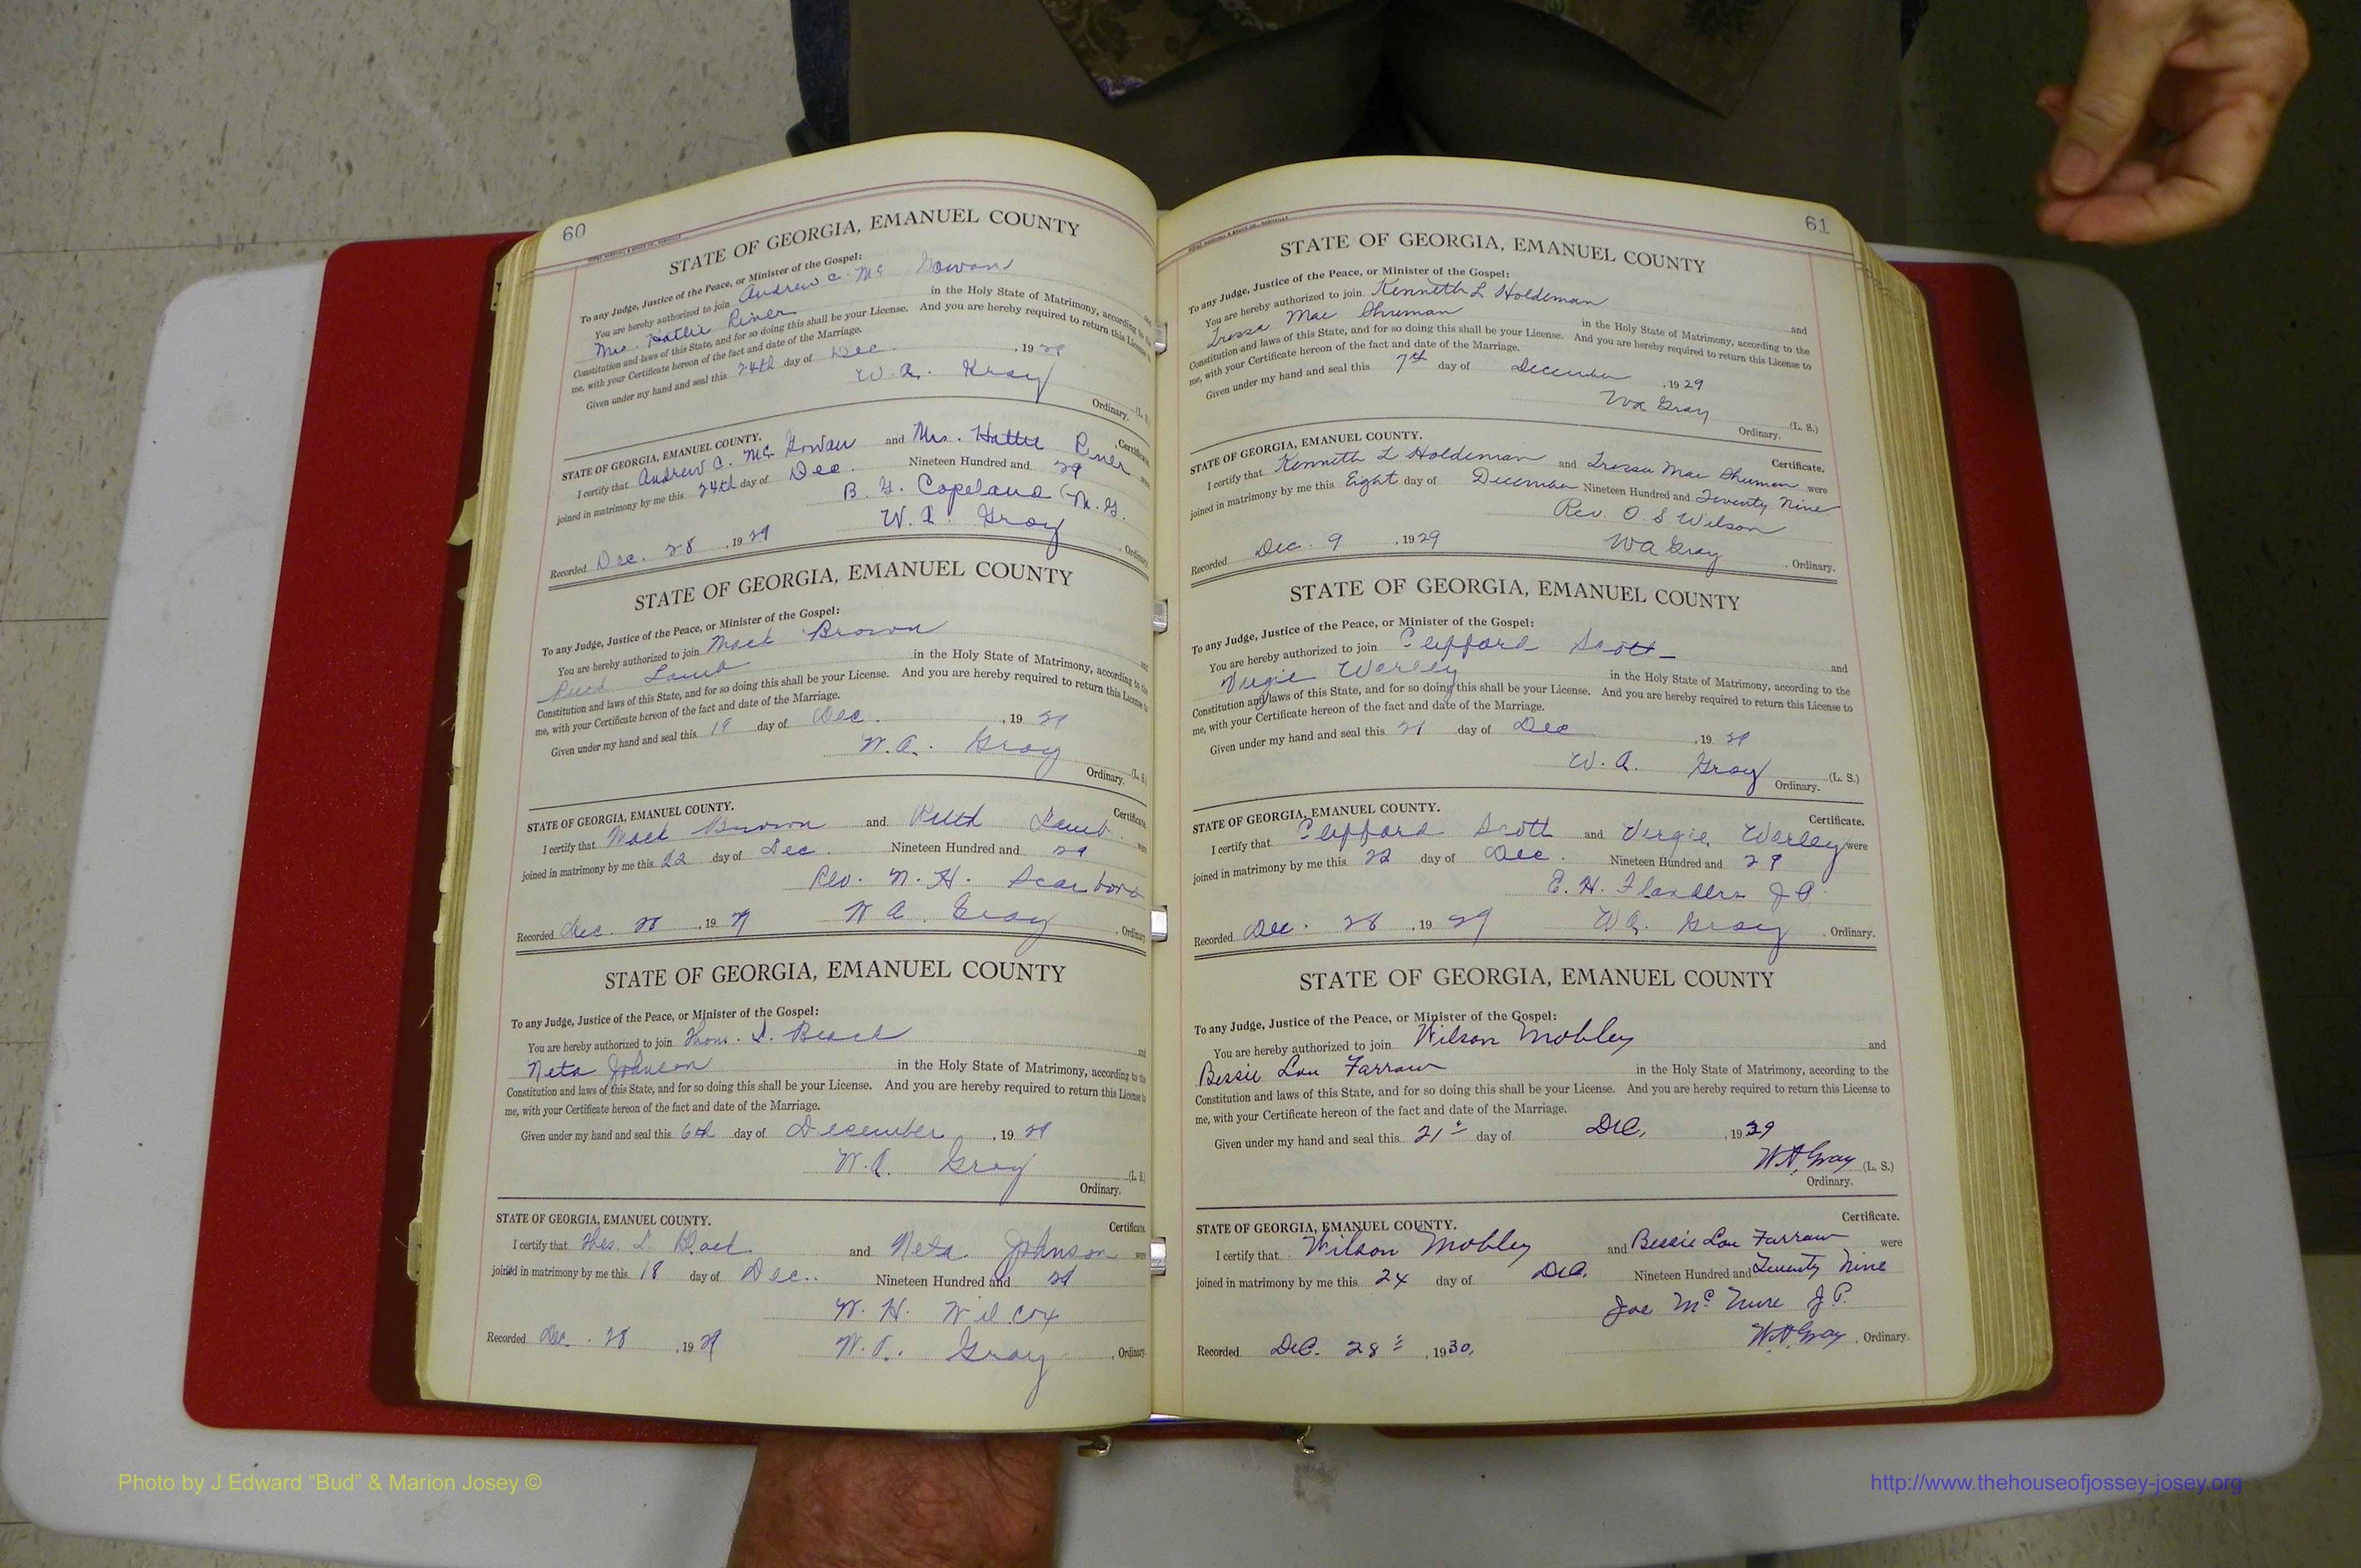 60
STATE OF GEORGIA, EMANUEL COUNTY
To any Judge, Justice of the Peace, or Minister of the Gospel:
You are hereby authorized to join Andrew C. Mc Gowan and
Mrs. Hattie Riner in the Holy State of Matrimony, according to the
Constitution and laws of this State, and for so doing this shall be your License. And you are hereby required to return this License to
me, with your Certificate hereon of the fact and date of the Marriage.
Given under my hand and seal this 24th day of Dec. , 1929
W. A. Gray (L. S.)
Ordinary.
STATE OF GEORGIA, EMANUEL COUNTY. Certificate.
I certify that Andrew C. Mc Gowan and Mrs. Hattie Riner were
joined in matrimony by me this 24th day of Dec. Nineteen Hundred and 29
B. Y. Copeland (M. G.
Recorded Dec. 28 , 1929 W. A. Gray , Ordinary.
STATE OF GEORGIA, EMANUEL COUNTY
To any Judge, Justice of the Peace, or Minister of the Gospel:
You are hereby authorized to join Mack Brown and
Ruth Lamb in the Holy State of Matrimony, according to the
Constitution and laws of this State, and for so doing this shall be your License. And you are hereby required to return this License to
me, with your Certificate hereon of the fact and date of the Marriage.
Given under my hand and seal this 19 day of Dec. , 19 29
W. A. Gray (L. S.)
Ordinary.
STATE OF GEORGIA, EMANUEL COUNTY. Certificate.
I certify that Mack Brown and Ruth Lamb were
joined in matrimony by me this 22 day of Dec. Nineteen Hundred and 29
Rev. N. H. Scarboro
Recorded Dec. 28 , 19 29 W A. Gray , Ordinary.
STATE OF GEORGIA, EMANUEL COUNTY
To any Judge, Justice of the Peace, or Minister of the Gospel:
You are hereby authorized to join Thos. L. Beach and
Neta Johnson in the Holy State of Matrimony, according to the
Constitution and laws of this State, and for so doing this shall be your License. And you are hereby required to return this License to
me, with your Certificate hereon of the fact and date of the Marriage.
Given under my hand and seal this 6th day of December , 19 29
W. A. Gray (L. S.)
Ordinary.
STATE OF GEORGIA, EMANUEL COUNTY. Certificate.
I certify that Thos. L. and Neta Johnson were
joined in matrimony by me this 18 day of Dec. Nineteen Hundred and 29
W. H. Wilcox
Recorded Dec. 28 , 19 29 W. A. Gray , Ordinary.
61
STATE OF GEORGIA, EMANUEL COUNTY
To any Judge, Justice of the Peace, or Minister of the Gospel:
You are hereby authorized to join Kenneth L Holdeman and
Tressa Mae Shuman in the Holy State of Matrimony, according to the
Constitution and laws of this State, and for so doing this shall be your License. And you are hereby required to return this License to
me, with your Certificate hereon of the fact and date of the Marriage.
Given under my hand and seal this 7th day of December , 1929
W A Gray (L. S.)
Ordinary.
STATE OF GEORGIA, EMANUEL COUNTY. Certificate.
I certify that Kenneth L Holdeman and Tressa Mae Shuman were
joined in matrimony by me this Eight day of December Nineteen Hundred and Twenty Nine
Rev. O. S Wilson
Recorded Dec. 9 , 1929 W A Gray , Ordinary.
STATE OF GEORGIA, EMANUEL COUNTY
To any Judge, Justice of the Peace, or Minister of the Gospel:
You are hereby authorized to join Clifford Scott and
Virgie Warley in the Holy State of Matrimony, according to the
Constitution and laws of this State, and for so doing this shall be your License. And you are hereby required to return this License to
me, with your Certificate hereon of the fact and date of the Marriage.
Given under my hand and seal this 21 day of Dec , 19 29
W. A. Gray (L. S.)
Ordinary.
STATE OF GEORGIA, EMANUEL COUNTY. Certificate.
I certify that Clifford Scott and Virgie Warley were
joined in matrimony by me this 22 day of Dec. Nineteen Hundred and 29
E. H. Flanders J P.
Recorded Dec. 28 , 19 29 W A. Gray , Ordinary.
STATE OF GEORGIA, EMANUEL COUNTY
To any Judge, Justice of the Peace, or Minister of the Gospel:
You are hereby authorized to join Wilson Mobley and
Bessie Lou Farrow in the Holy State of Matrimony, according to the
Constitution and laws of this State, and for so doing this shall be your License. And you are hereby required to return this License to
me, with your Certificate hereon of the fact and date of the Marriage.
Given under my hand and seal this 21st day of Dec, , 1929
W. A. Gray (L. S.)
Ordinary.
STATE OF GEORGIA, EMANUEL COUNTY. Certificate.
I certify that Wilson Mobley and Bessie Lou Farrow were
joined in matrimony by me this 24 day of Dec. Nineteen Hundred and Twenty Nine
Joe Mc J P.
Recorded Dec. 28th , 1930, W. A. Gray , Ordinary.
Photo by J Edward “Bud” & Marion Josey ©
http://www.thehouseofjossey-josey.org